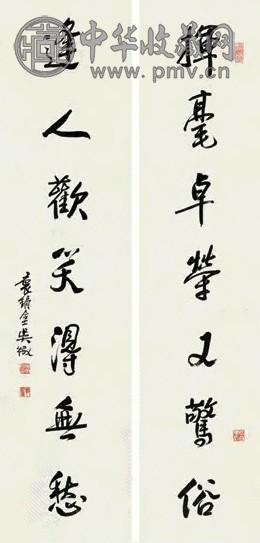 中华收藏网
www.pmv.cn
揮毫卓犖又驚俗
逢人歡笑得無愁
吳徵